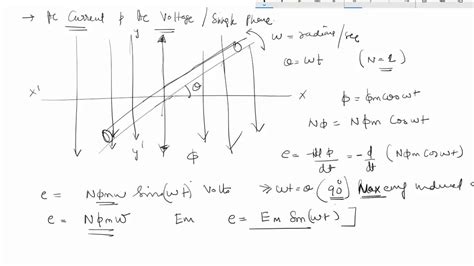 → AC Current & AC Voltage / Single Phase
y'
ω = radians/sec
θ = ωt (N=1)
θ
x' x
φ = φm cos ωt
y'
φ
Nφ = Nφm Cos ωt
e = -dφ/dt = -d/dt (Nφm Cos ωt)
e = Nφmω Sin(ωt) Volts ⇒ ωt = θ (90°) Max emf induced
e = Nφmω Em e = Em Sin(ωt)]